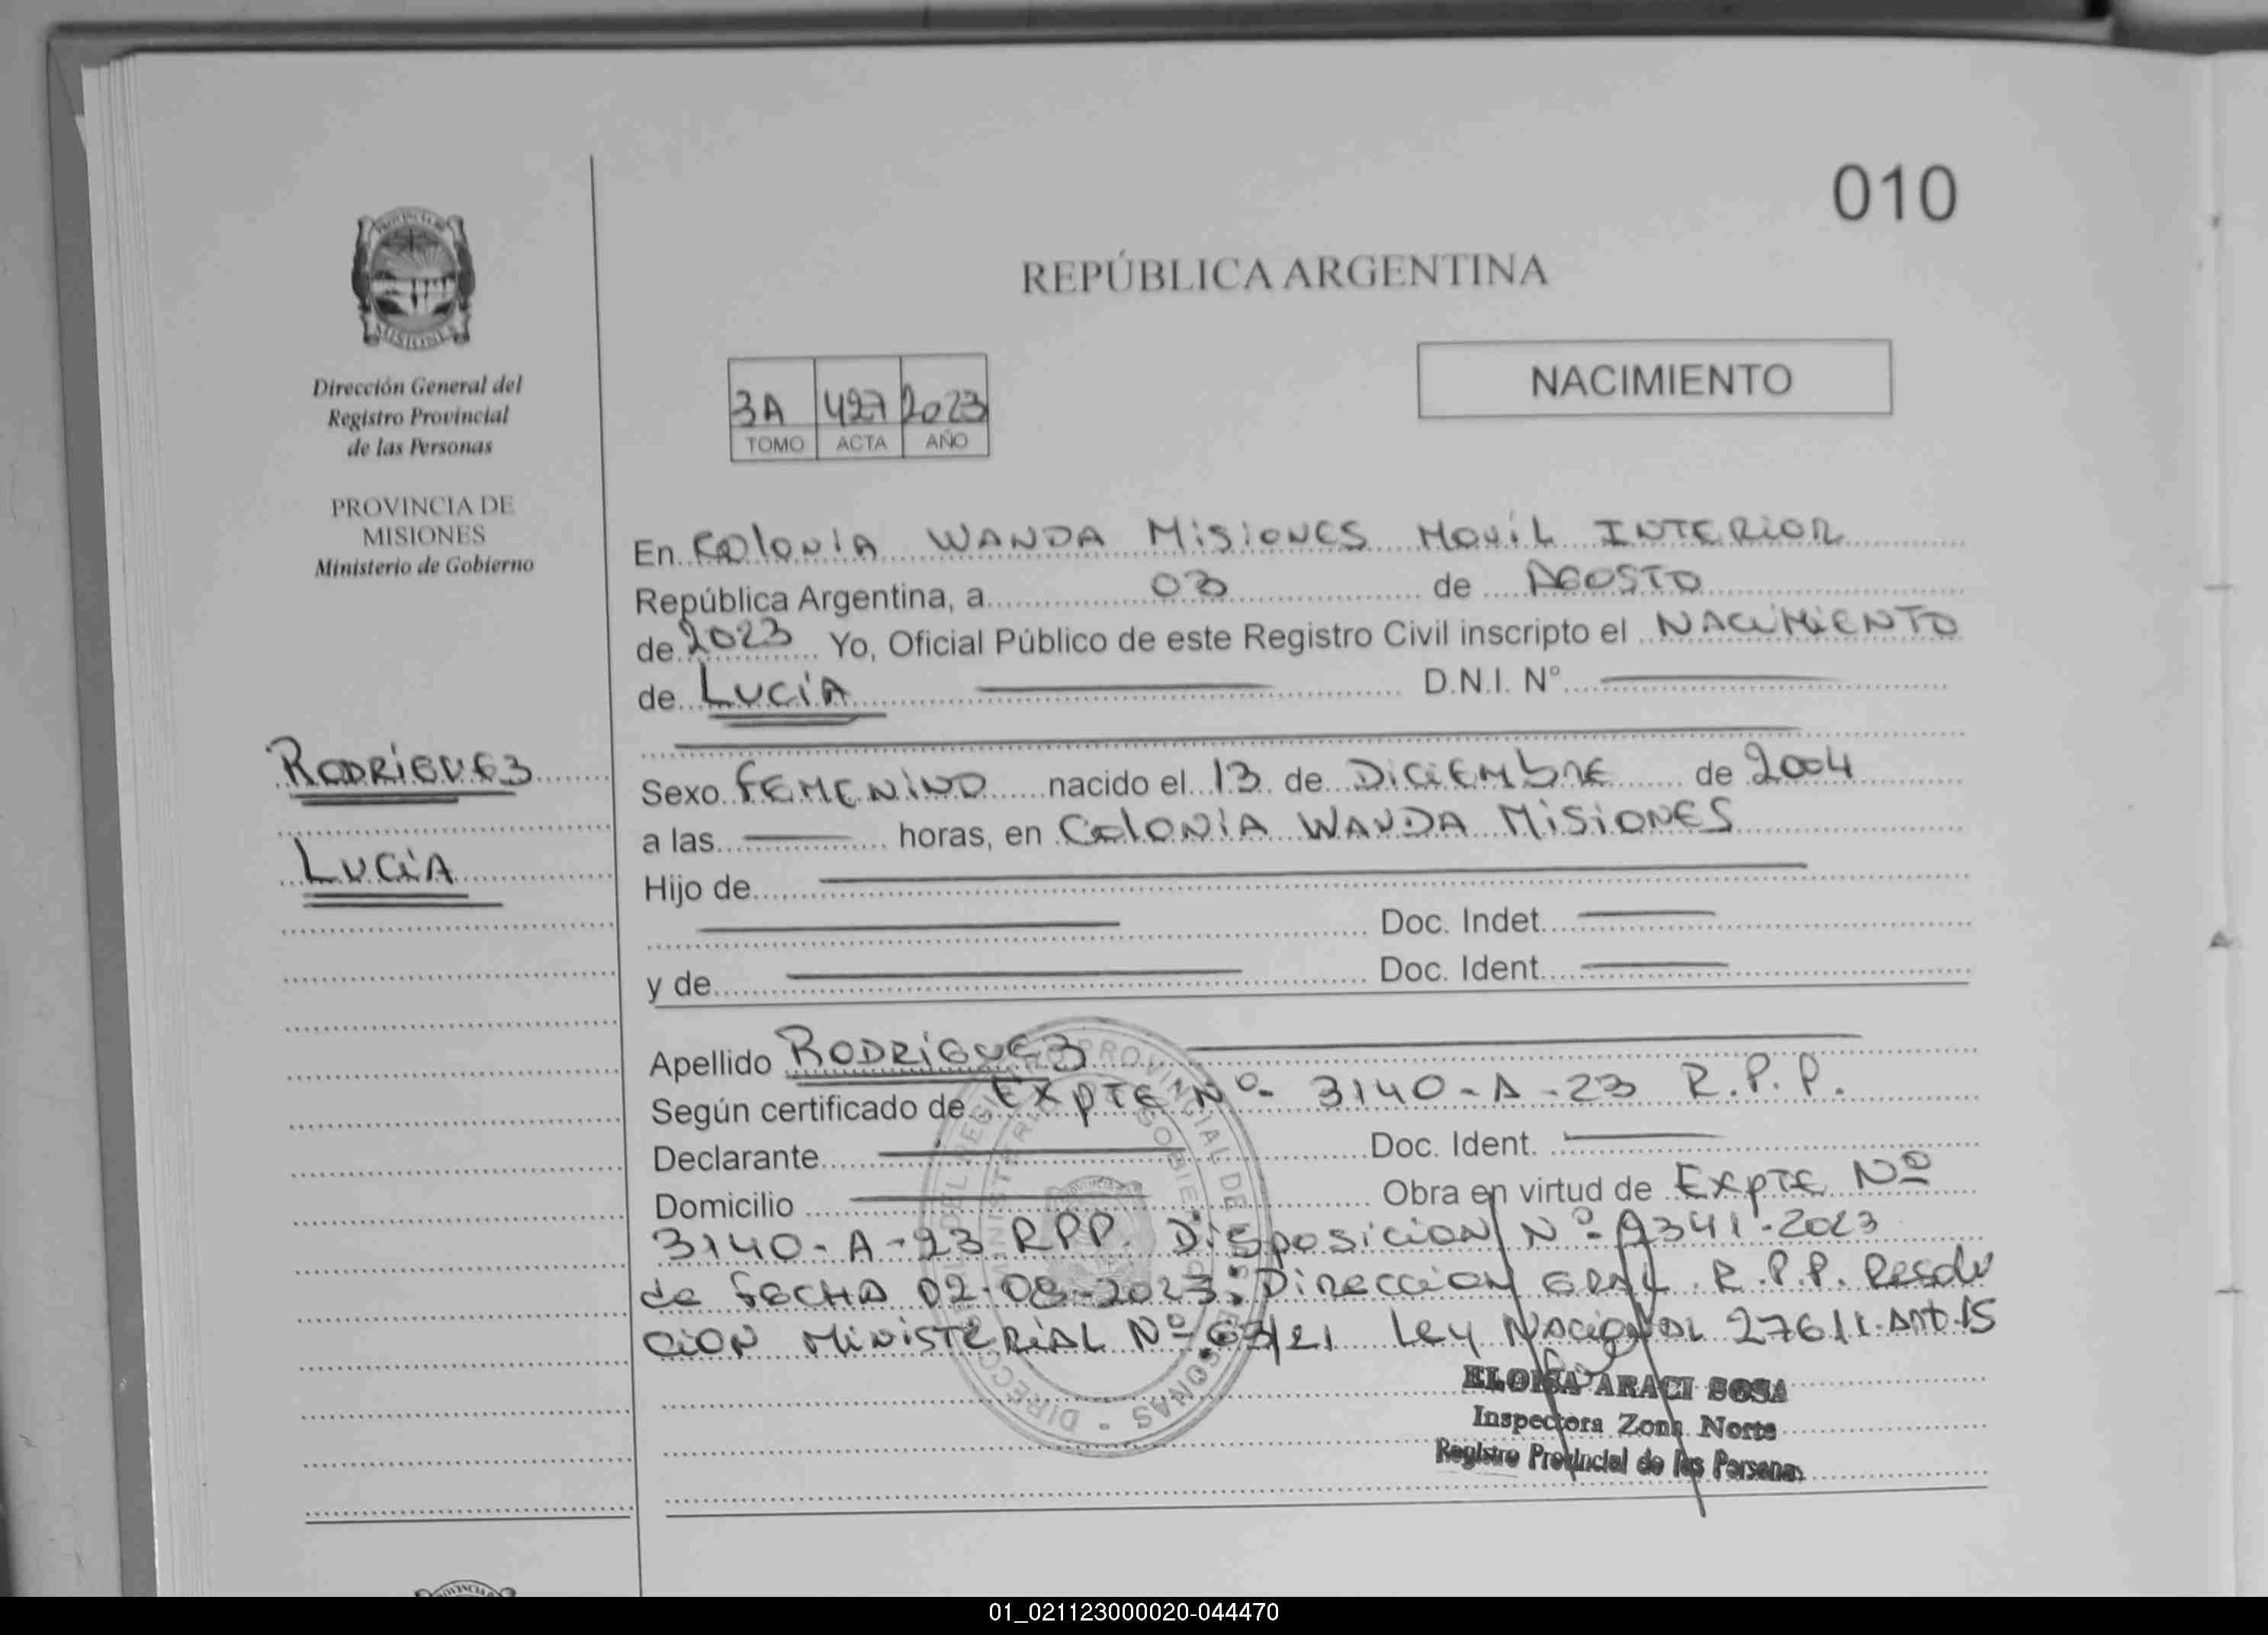 010
PROVINCIA DE
MISIONES
REPÚBLICA ARGENTINA
Dirección General del
Registro Provincial
de las Personas
PROVINCIA DE
MISIONES
Ministerio de Gobierno
3A 427 2023
TOMO ACTA AÑO
NACIMIENTO
RODRIGUEZ
LUCÍA
En COLONIA WANDA MISIONES MOVIL INTERIOR
República Argentina, a 03 de AGOSTO
de 2023 Yo, Oficial Público de este Registro Civil inscripto el NACIMIENTO
de LUCÍA D.N.I. Nº
Sexo FEMENINO nacido el 13 de DICIEMBRE de 2004
a las horas, en COLONIA WANDA MISIONES
Hijo de
Doc. Indet.
y de Doc. Ident.
Apellido RODRIGUEZ
Según certificado de EXPTE Nº 3140-A-23 R.P.P.
Declarante Doc. Ident.
Domicilio Obra en virtud de EXPTE Nº
3140-A-23 RPP. DISPOSICION Nº 2341-2023
de FECHA 02-08-2023. DIRECCION GRAL R.P.P. Resolu
CION MINISTERIAL Nº 63/21 Ley NACIONAL 27611 Art. 15
ELOISA ARACI SOSA
Inspectora Zona Norte
Registro Provincial de las Personas
DIRECCIÓN DEL REGISTRO PROVINCIAL DE LAS PERSONAS
MINISTERIO GOBIERNO
01_021123000020-044470